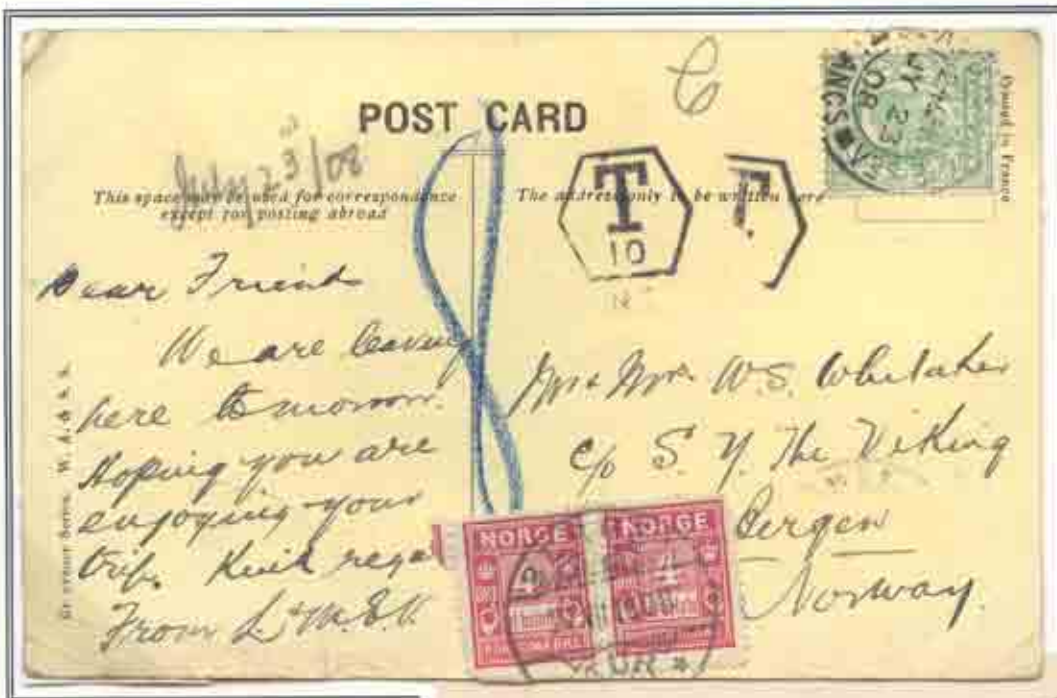 POST CARD
July 23rd/08
This space may be used for correspondence
except for posting abroad
The address only to be written here
T
10
T.
JY 23
08
Printed in France
Dear Friend
We are leaving
here tomorrow.
Hoping you are
enjoying your
trip. Kind rega
From L & M.E.V.
Mr & Mrs. W.S. Whitaker
c/o S. Y. The Viking
Bergen
Norway
NORGE
NORGE
4